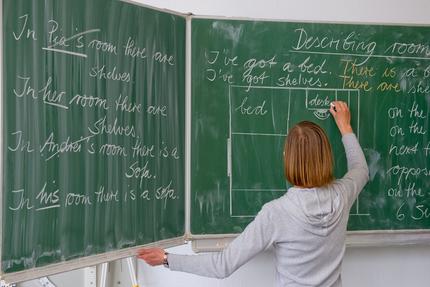 In Pea's room there are
shelves.
In her room there are
shelves.
In Andrei's room there is a
sofa.
In his room there is a sofa.
Describing room
I've got a bed. There is a b
I've got shelves. There are she
bed
desk
on the
on the
next t
oppos
on the
6 Sc